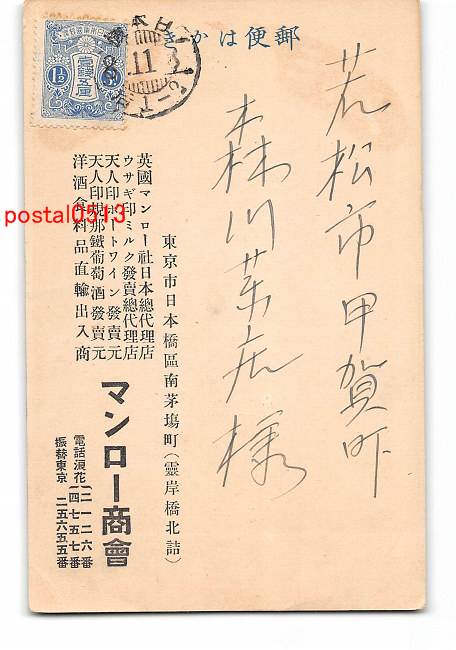 郵便はかき
若松市甲賀町
森川菓店様
英國マンロー社日本總代理店
ウサギ印ミルク發賣總代理店
天人印ポートワイン發賣元
天人印規那鐵葡萄酒發賣元
洋酒食料品直輸出入商
東京市日本橋區南茅塲町(靈岸橋北詰)
マンロー商會
電話浪花
二一二六番
四七五七番
振替東京 二五六五五番
postal0513
1½
壹錢五厘
11